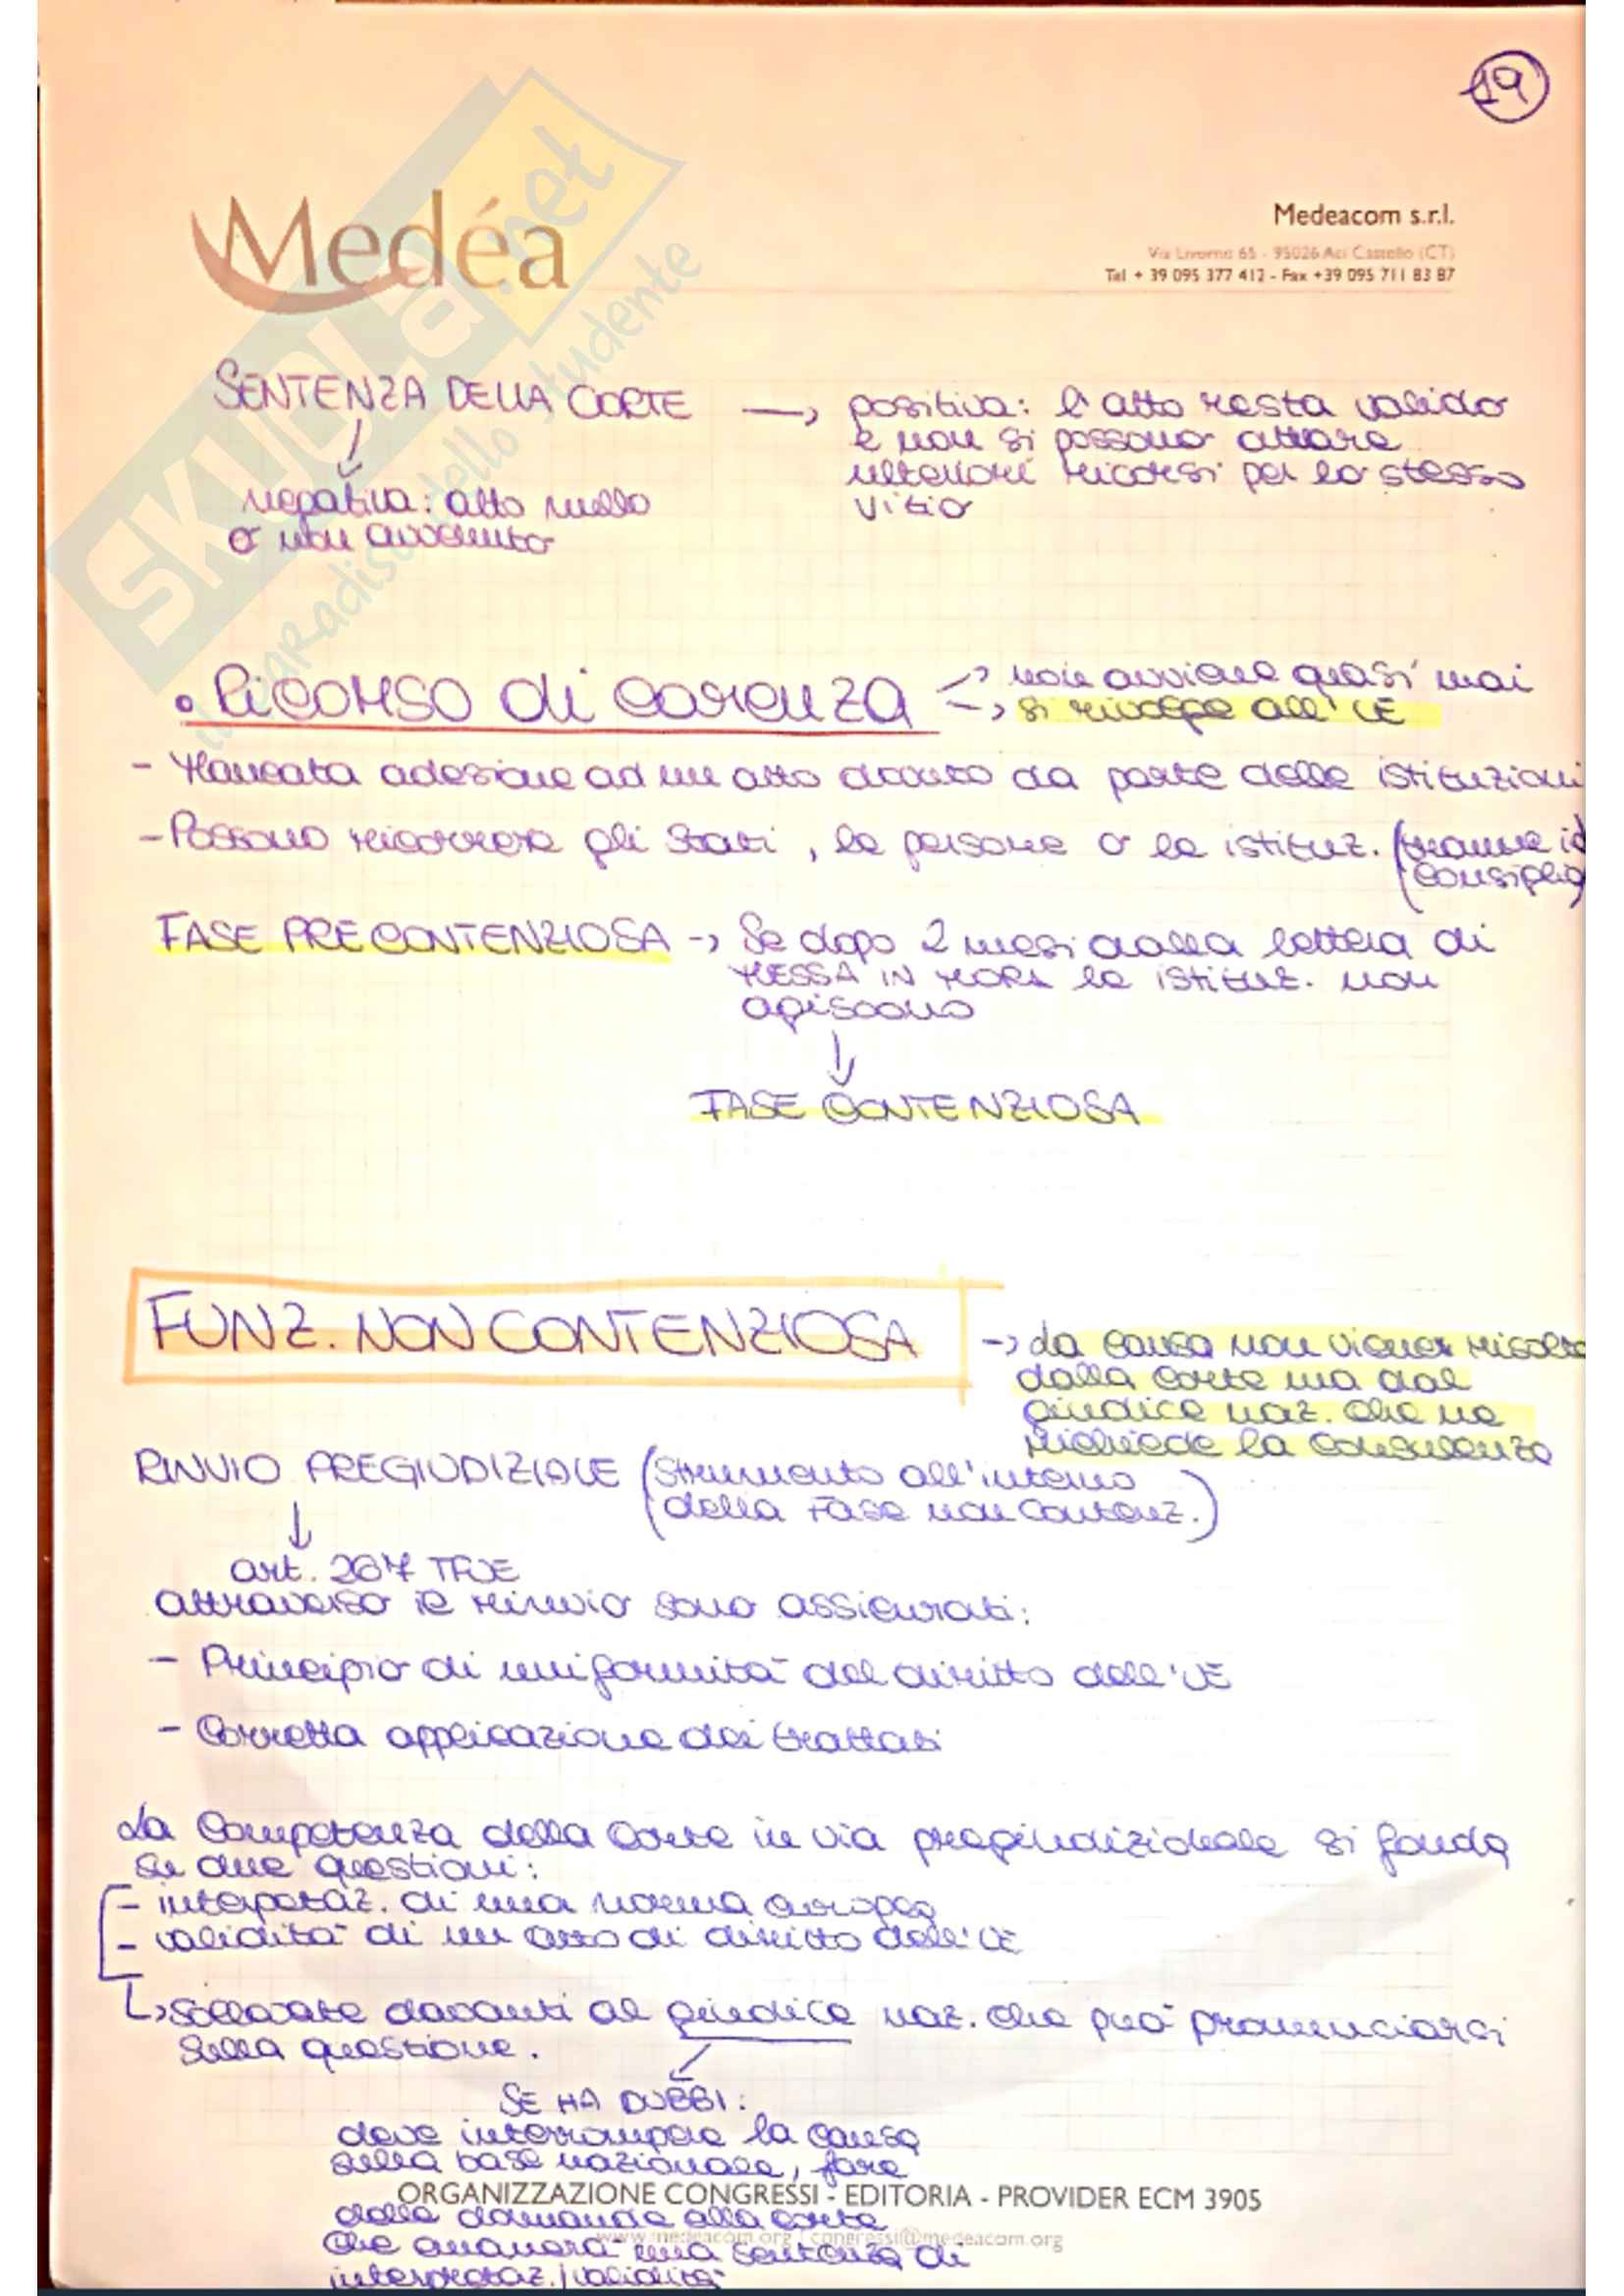 19
Medéa
Medeacom s.r.l.
Via Livorno 65 - 95026 Aci Castello (CT)
Tel + 39 095 377 412 - Fax +39 095 711 83 87
SKUOLA.net
il paradiso dello studente
SENTENZA DELLA CORTE → positiva: l'atto resta valido
e non si possono attuare
ulteriori ricorsi per lo stesso
vizio
negativa: atto nullo
o non avvenuto
• Ricorso di carenza → non avviene quasi mai
→ si rivolge all'UE
- Mancata adesione ad un atto dovuto da parte delle istituzioni
- Possono ricorrere gli Stati, le persone o le istituz. (tranne il
Consiglio
FASE PRECONTENZIOSA → Se dopo 2 mesi dalla lettera di
MESSA IN MORA le istituz. non
agiscono
FASE CONTENZIOSA
FUNZ. NON CONTENZIOSA → La causa non viene risolta
dalla corte ma dal
giudice naz. che ne
richiede la consulenza
RINVIO PREGIUDIZIALE (strumento all'interno
della fase non contenz.)
art. 267 TFUE
attraverso il rinvio sono assicurati:
- Principio di uniformità del diritto dell'UE
- Corretta applicazione dei trattati
La competenza della Corte in via pregiudizideale si fonda
su due questioni:
- interpetaz. di una norma europea
- validità di un atto di diritto dell'UE
↳ sollevate davanti al giudice naz. che può pronunciarsi
sulla questione.
SE HA DUBBI:
deve interrompere la causa
sulla base nazionale, fare
ORGANIZZAZIONE CONGRESSI - EDITORIA - PROVIDER ECM 3905
delle domande alla corte
www.medeacom.org | congressi@medeacom.org
che emanerà una sentenza di
interpretaz./validità